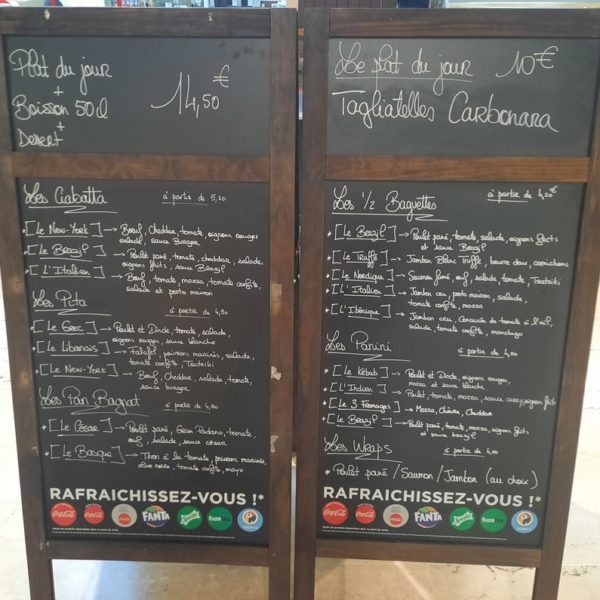 Plat du jour
+
Boisson 50cl
+
Dessert
14,50€
Les Ciabatta à partir de 5,20
[Le New-York] → Bœuf, Cheddar, tomate, oignons rouges
salade, sauce Burger
[Le Brazil] → Poulet pané, tomate, cheddar, salade,
oignons frits, sauce Brazil
[L'Italien] → Bœuf, tomate, mozza, tomate confite,
salade et pesto maison
Les Pita à partir de 4,80
[Le Grec] → Poulet et Dinde, tomate, salade,
oignon rouge, sauce blanche
[Le Libanais] → Falafel, poivron marinés, salade,
tomate confite, Tzatziki
[Le New-York] → Bœuf, Cheddar, salade, tomate,
sauce burger
Les Pan Bagnat à partir de 4,80
[Le César] → Poulet pané, Gran Padano, tomate,
œuf, salade, sauce césar
[Le Basque] → Thon à la tomate, poivron marinés,
olive noire, tomate confite, mayo
RAFRAICHISSEZ-VOUS !*
Coca-Cola Coca-Cola Coca-Cola FANTA Sprite fuzetea
Le plat du jour 10€
Tagliatelles Carbonara
Les 1/2 Baguettes à partir de 4,20€
[Le Brazil] → Poulet pané, tomate, salade, oignons frits
et sauce Brazil
[Le Truffé] → Jambon Blanc Truffé, beurre doux, cornichons
[Le Nordique] → Saumon fumé, œuf, salade, tomate, Tzatziki
[L'Italien] → Jambon cru, pesto maison, salade,
tomate confite, mozza
[L'Ibérique] → Jambon cuit, Concassé de tomate à l'ail,
salade, tomate confite, manchego
Les Panini à partir de 4,50
[Le Kebab] → Poulet et Dinde, oignon rouge,
mozza et sauce blanche
[L'Indien] → Poulet, tomate, mozza, sauce curry, oignon frits
[Le 3 Fromages] → Mozza, Chèvre, Cheddar
[Le Brazil] → Poulet pané, tomate, mozza, oignon frits
et sauce brazil
Les Wraps à partir de
Poulet pané / Saumon / Jambon (au choix)
RAFRAICHISSEZ-VOUS !*
Coca-Cola Coca-Cola Coca-Cola FANTA Sprite fuzetea